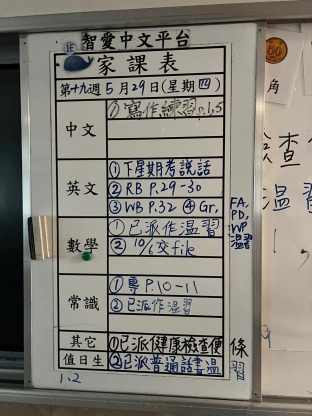 智愛中文平台
1E
家課表
第十九週5月29日(星期四)
中文
①寫作練習p.1,5
英文
①下星期考說話
②RB P.29-30
③WB P.32 ④Gr,
FA,
PD,
WP
溫習
數學
①已派作溫習
②10/6交file
常識
①專P.10-11
②已派作溫習
其它
①已派健康檢查便條
值日生
②已派普通話書溫習
1,2
角
檢查
溫習